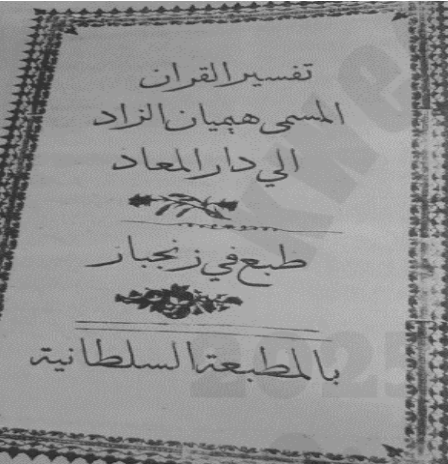 تفسير القران
المسمى هيميان الزاد
الي دار المعاد
طبع في زنجبار
بالمطبعة السلطانية
2025